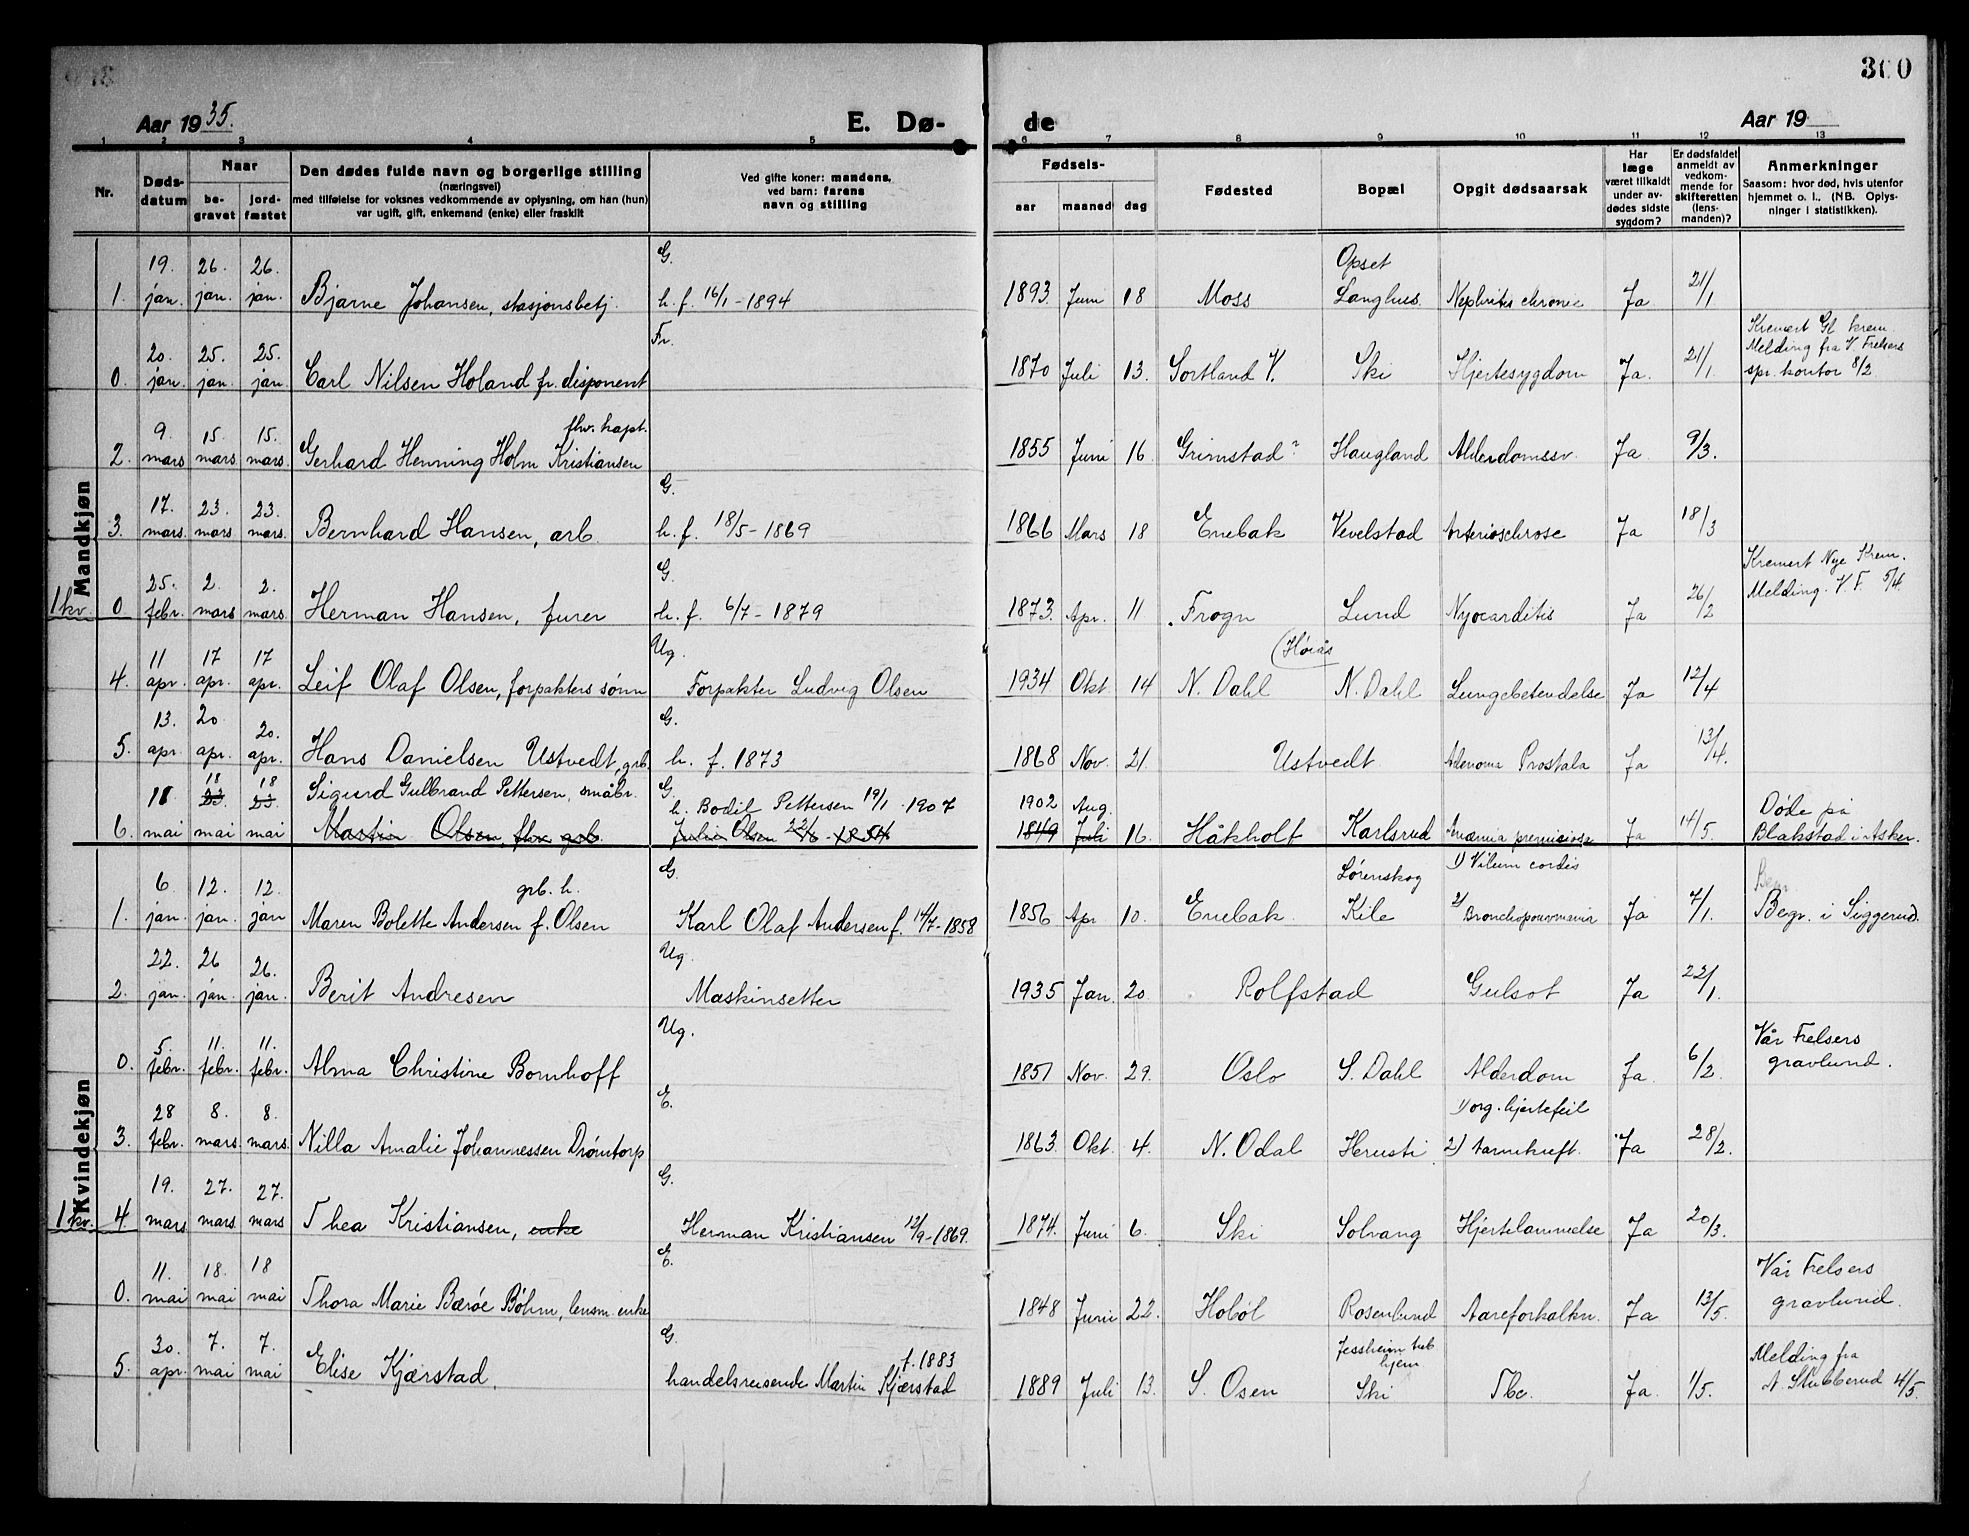 300
Aar 1935.
E. Dø-
de
Aar 19
1 2 3 4 5 6 7 8 9 10 11 12 13
Nr.
Døds-
datum
Naar
be-
gravet
jord-
fæstet
Den dødes fulde navn og borgerlige stilling
(næringsvei)
med tilføielse for voksnes vedkommende av oplysning, om han (hun)
var ugift, gift, enkemand (enke) eller fraskilt
Ved gifte koner: mandens,
ved barn: farens
navn og stilling
Fødsels-
aar maaned dag
Fødested
Bopæl
Opgit dødsaarsak
Har
læge
været tilkaldt
under av-
dødes sidste
sygdom?
Er dødsfaldet
anmeldt av
vedkom-
mende for
skifteretten
(lens-
manden)?
Anmerkninger
Saasom: hvor død, hvis utenfor
hjemmet o. l.. (NB. Oplys-
ninger i statistikken).
Mandkjøn
19. 26. 26. G. Opset
1. jan. jan. jan. Bjarne Johansen, stasjonsbetj. h. f. 16/1 - 1894 1893. Juni 18 Moss Langhus. Nephritis chronic Ja 21/1
20. 25. 25. Fr. Kremert Gl. krem.
Melding fra V. Frelsers
0. jan. jan. jan. Carl Nilsen Holand fr. disponent 1870 Juli 13. Sortland V. Ski Hjertesygdom Ja. 21/1 spr. kontor 8/2.
9. 15. 15. fhv. kapt.
2. mars mars. mars. Gerhard Henning Holm Kristiansen 1855 Juni 16. Grimstad? Haugland Alderdomssv. Ja. 9/3.
17. 23. 23. G.
3. mars. mars. mars. Bernhard Hansen, arb. h. f. 18/5 - 1869 1866 Mars 18 Enebak Vevelstad Arteriosclrose Ja 18/3
25. 2. 2. G. Kremert Nye Krem.
Melding. V. F. 5/4.
1 kv. 0 febr. mars mars. Herman Hansen, furer h. f. 6/7 - 1879 1873. Apr. 11 Frogn Lund Myocarditis Ja 26/2
11 17 17 Ug. (Høiås
4. apr. apr. apr. Leif Olaf Olsen, forpakters sønn Forpakter Ludvig Olsen 1934 Okt 14 N. Dahl N. Dahl Lungebetendelse Ja 12/4
13. 20. 20. G.
5. apr. apr. apr. Hans Danielsen Ustvedt, grb. h. f. 1873 1868 Nov. 21. Ustvedt Adenoma Prostata Ja 13/4.
18 18 Sigurd Gulbrand Pettersen, småbr. G. h. Bodil Pettersen 19/1 - 1907 1902 Aug. Døde på
11 23. 23.
6. mai mai mai Martin Olsen, fhv. grb. Julie Olsen 22/6 - 1854 1849 Juli 16. Håkholt Karlsrud Anæmia perniciosa Ja 14/5. Blakstad i Asker.
Kvindekjøn
6 12. 12. grb. h. G. Lørenskog 1) Vitium cordis
1. jan. jan. jan Maren Bolette Andersen f. Olsen Karl Olaf Andersen f. 14/7 - 1858 1856 Apr 10. Enebak. Kile 2) Bronchopneumonia Ja 7/1. Begr. i Siggerud.
22. 26 26. Ug.
2. jan. jan. jan. Berit Andresen Maskinsetter 1935 Jan. 20 Rolfstad Gulsot Ja 22/1.
5. 11. 11. Ug. Vår Frelsers
0. febr. febr. febr. Alma Christine Bomhoff 1851 Nov. 29. Oslo S. Dahl Alderdom Ja. 6/2. gravlund.
28 8. 8. E. 1) org. hjertefeil
3. febr. mars. mars. Nilla Amalie Johannessen Drømtorp 1863. Okt. 4. N. Odal Herusti 2) tarmkreft. Ja 28/2.
19. 27. 27. G.
1 kv. 4. mars mars mars Thea Kristiansen, enke Herman Kristiansen 12/9 - 1869. 1874. Juni 6. Ski Solvang Hjertelammelse Ja 20/3.
11. 18. 18 E. Vår Frelsers
0. mai mai mai Thora Marie Bærøe Bøhm, lensm. enke 1848 Juni 22. Hobøl Rosenlund Aareforkalkn. Ja 13/5. gravlund.
30. 7. 7. G. f. 1883 Jessheim tub. hjem Melding fra
5. apr. mai mai Elise Kjærstad. handelsreisende Martin Kjærstad 1889 Juli 13. S. Osen Ski Tbc. Ja. 1/5. A. Stubberud 4/5.